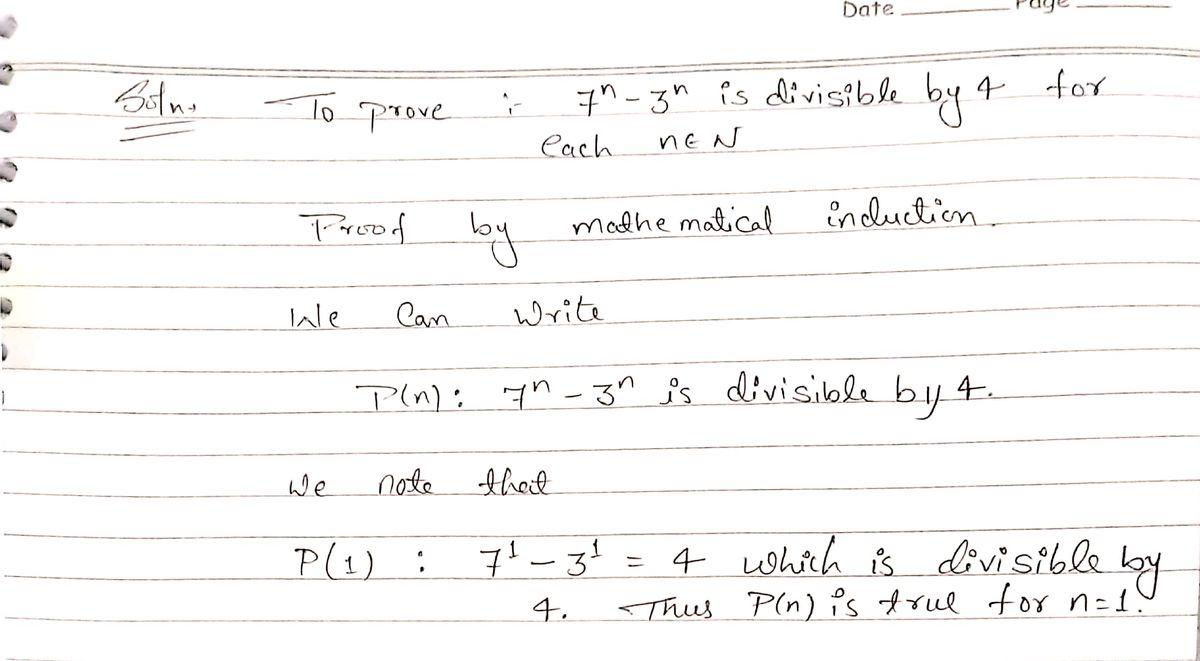 Date Page
Soln. To prove :- 7ⁿ - 3ⁿ is divisible by 4 for
each n∈N
Proof by mathematical induction.
We Can Write
P(n): 7ⁿ - 3ⁿ is divisible by 4.
We note that
P(1) : 7¹ - 3¹ = 4 which is divisible by
4. Thus P(n) is true for n=1.